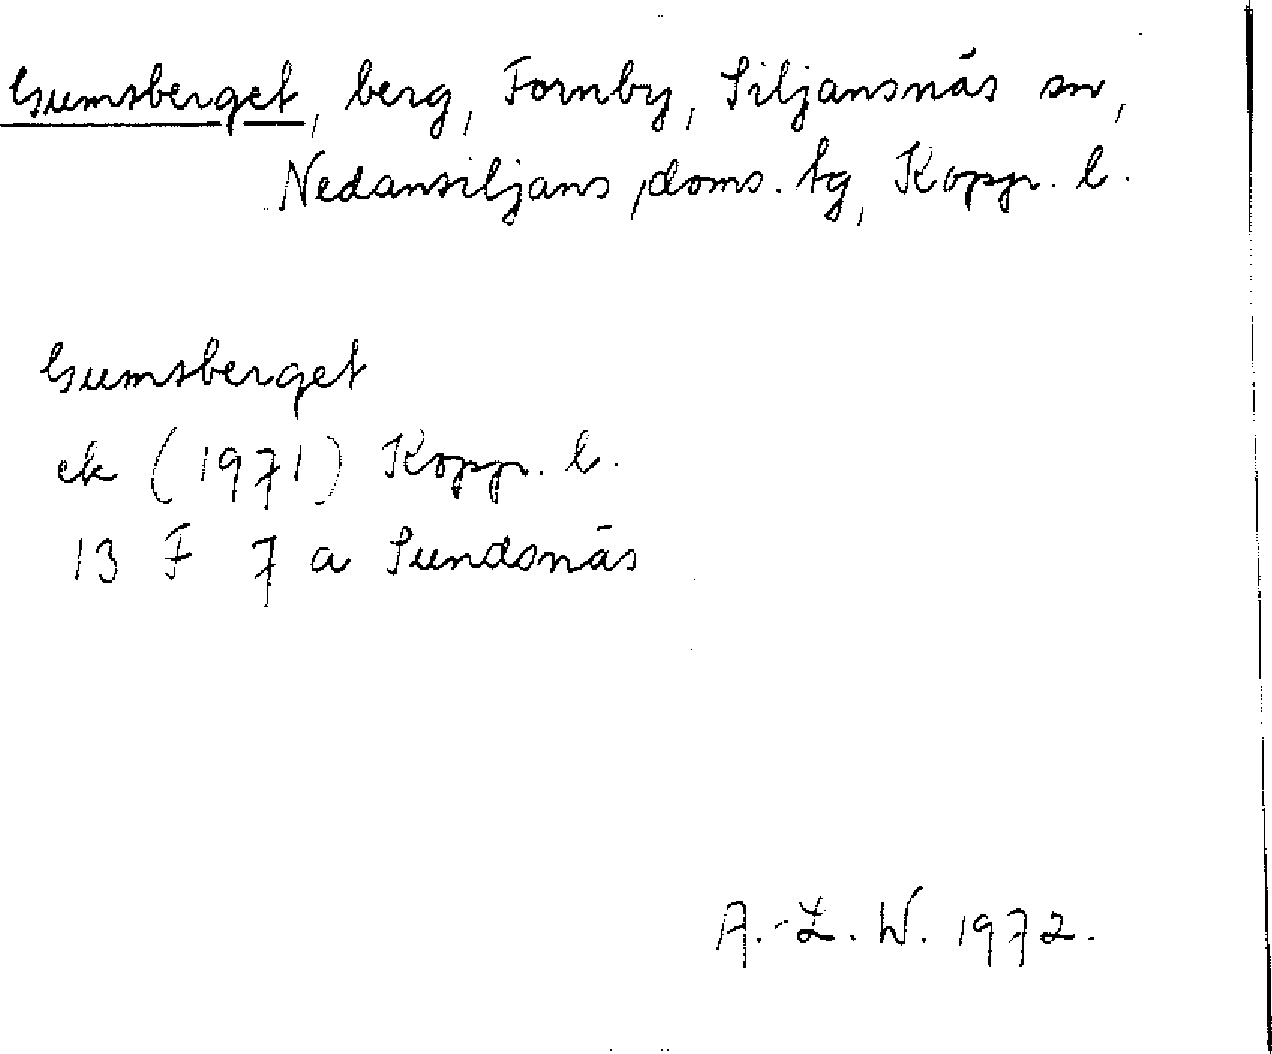 Gumsberget, berg, Fornby, Siljansnäs sn,
Nedansiljans doms. tg, Kopp. l.
Gumsberget
ek (1971) Kopp. l.
13 F 7 a Sundsnäs
A.-L. W. 1972.